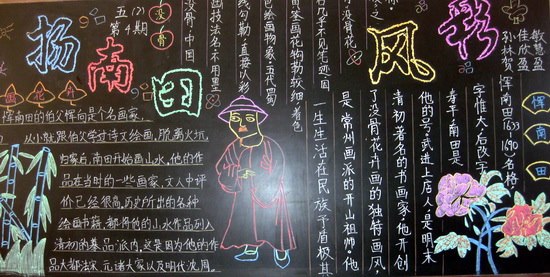 扬南田
风彩
五(2)
第4期
没骨
敏慧盈
佳欣盈
孙林贺
恽南田1633
1690,名格,
字惟大,后改字
寿平,南田是
他的号,武进上店人,是明末
清初著名的书画家,他开创
了没骨花卉画的独特画风,
是常州画派的开山祖师,他
一生生活在民族矛盾极其
没骨,中国
画技法名,不用墨
线勾勒,直接以彩
色绘画物象。五代蜀
黄筌画花钩勒较细,着色
后几乎不见笔迹,因
有"没骨花"
之
恽南田
恽南田的伯父恽向是个名画家,
从小就跟伯父学过诗文绘画,脱离火坑,
归家后,南田开始画山水,他的作
品在当时的一些画家,文人中评
价已经很高,历史所出的各种
绘画书籍,都将他的山水作品列入
清初的摹品派内,这是因为他的作
品大都法宋、元诸大家以及明代沈周、